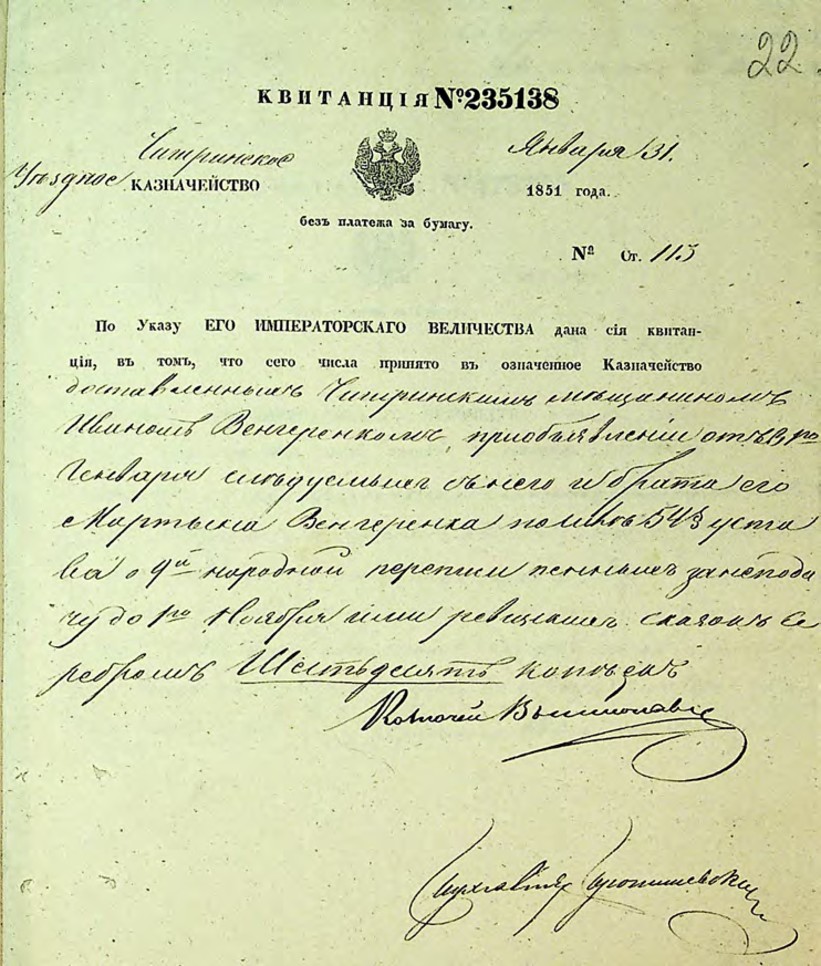 22.
КВИТАНЦІЯ №235138
Чигринское Января 31.
Уѣздное КАЗНАЧЕЙСТВО 1851 года.
безъ платежа за бумагу.
№ Ст. 115
По Указу ЕГО ИМПЕРАТОРСКАГО ВЕЛИЧЕСТВА дана сія квитан-
ція, въ томъ, что сего числа принято въ означенное Казначейство
доставленныхъ Чигринскимъ мещаниномъ
Иваномъ Венгеренкомъ, приобъявленіи отъ
Генваря слѣдуемыхъ съ него и брата его
Мартына Венгеренка 543 уста
ва о 9й народной переписи пенныхъ за непода
чу до 1го Ноября ими ревизкихъ сказокъ се
ребромъ Шестьдесятъ копѣекъ
Казначей
Бухгалтеръ